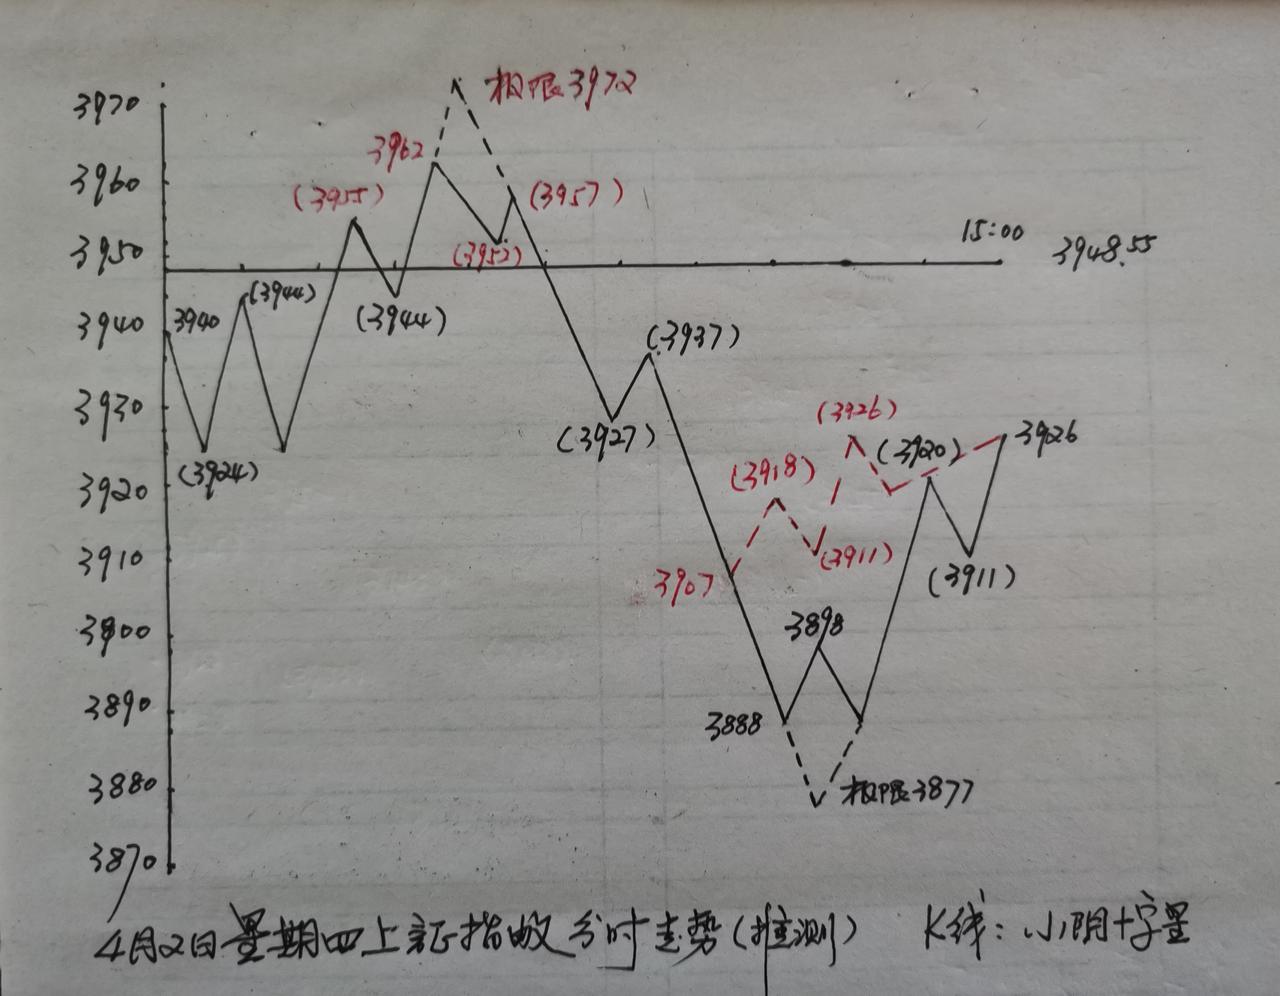 极限3972
3970
3962
3960
(3955)
(3957)
15:00
3950
(3952)
3948.55
3940
3940
(3944)
(3944)
(3937)
3930
(3927)
(3926)
3926
(3920)
(3924)
3920
(3918)
3910
(3911)
(3911)
3907
3900
3898
3890
3888
3880
极限3877
3870
4月2日星期四上证指数分时走势(推测) K线：小阴十字星